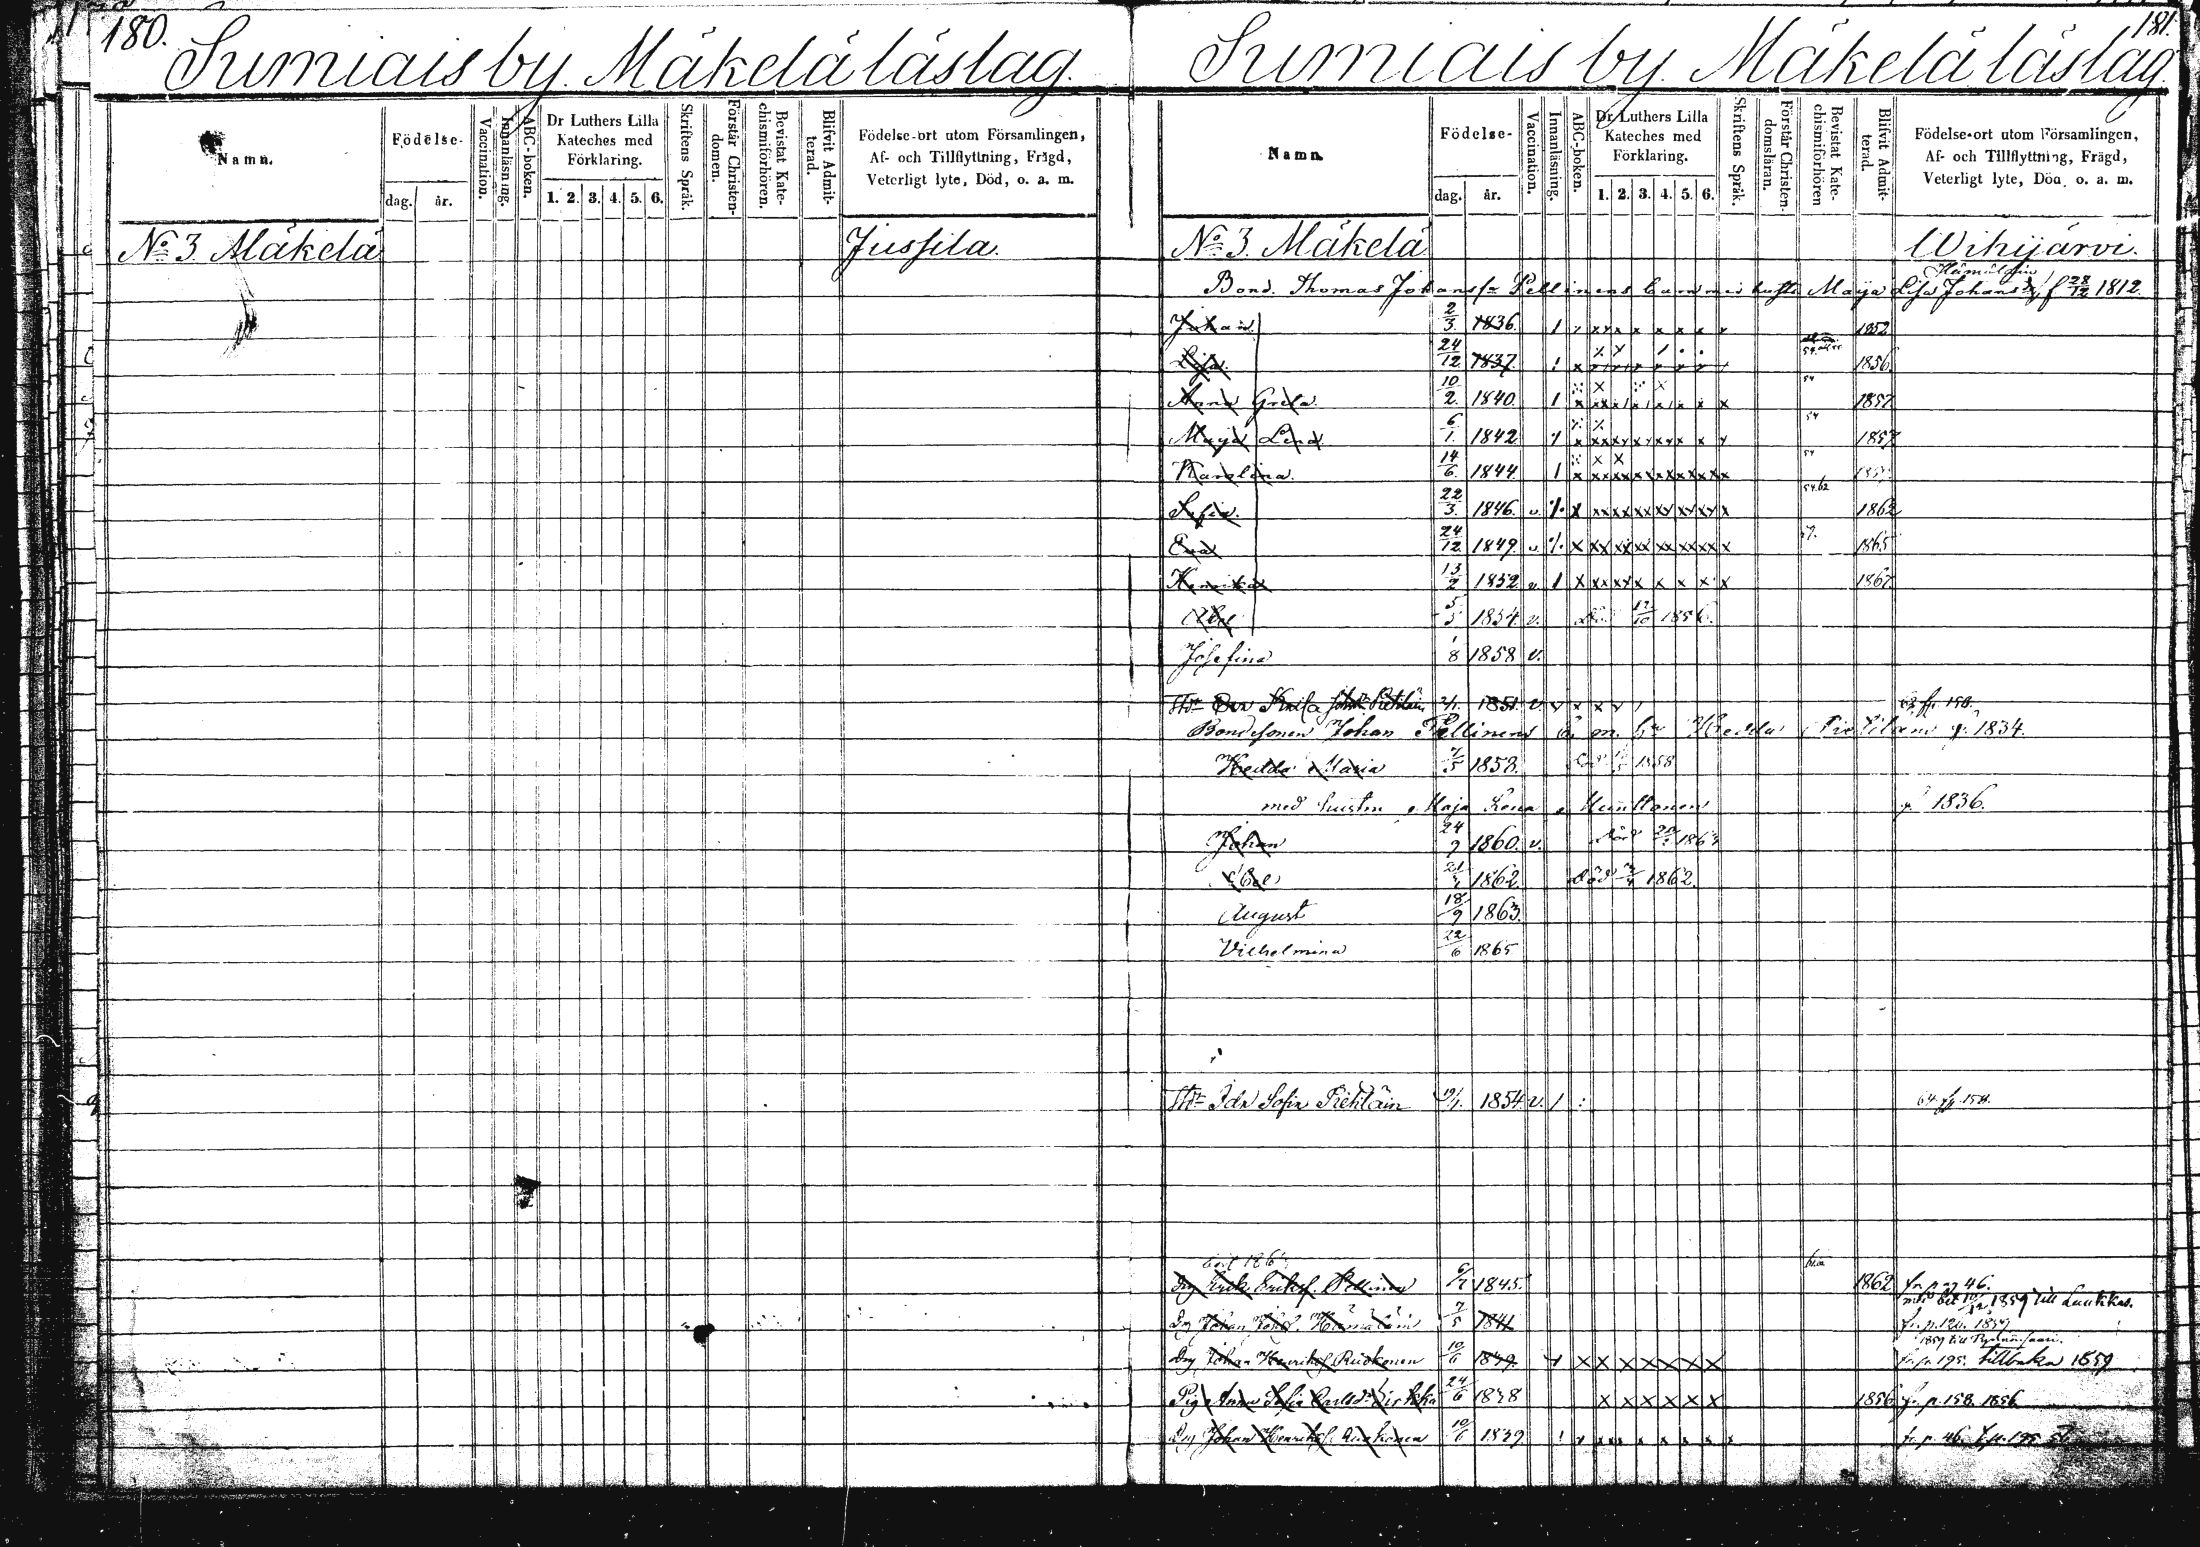 180.
Sumiais by. Mäkelä läslag.
Namn.
Födelse-
dag. år.
Vaccination.
Innanläsning.
ABC-boken.
Dr Luthers Lilla
Kateches med
Förklaring.
1. 2. 3. 4. 5. 6.
Skriftens Språk.
Förstår Christen-
domen.
Bevistat Kate-
chismiförhören.
Blifvit Admit-
terad.
Födelse-ort utom Församlingen,
Af- och Tillflyttning, Frägd,
Veterligt lyte, Död, o. a. m.
No 3 Mäkelä Jussila.
181.
Sumiais by. Mäkelä läslag.
Namn.
Födelse-
dag. år.
Vaccination.
Innanläsning.
ABC-boken.
Dr Luthers Lilla
Kateches med
Förklaring.
1. 2. 3. 4. 5. 6.
Skriftens Språk.
Förstår Christen-
domsläran.
Bevistat Kate-
chismiförhören
Blifvit Admit-
terad.
Födelse-ort utom Församlingen,
Af- och Tillflyttning, Frägd,
Veterligt lyte, Död, o. a. m.
No 3. Mäkelä Wihijärvi.
Bond. Thomas Johansſn Pellinens barn med hustr. Maija Lisa Johansd. Hämäläin f 28/12 1812.
Johan 2/3 1836. 1852
Lisa 24/12 1837. 1856
Anna Greta 10/2 1840. 1857
Maija Lena 6/1 1842 54 1857
Karolina 14/6 1844. 54
Sofia 22/3 1846. v. 54.62 1862
Eva 24/12 1849 v. 1865
Henrika 13/2 1852 v. 1867
Abel 5/5 1854. v. Död 12/10 1856.
Josefina 1/8 1858 v.
1851. v fr. 158.
Bondesonen Johan Pellinens b. m. h. Hedda Pietiläin f. 1834.
Hedda Maria 7/5 1858. 1858
med hustru Maja Lena Minttonen f. 1836.
Johan 24/9 1860. v. Död 1863
Abel 21/4 1862. Död 1862.
August 18/9 1863.
Vilhelmina 22/6 1865
Ida Sofia Pietiläin 1854. v. 64 fr. 158.
Drg Erik Eriksſ. Pellinen 6/7 1845. 1862 fr. p. 46.
1859 till Lautkas.
Drg Johan Johsſ. Hämäläin 7/5 1841 fr. p. 120. 1857
Drg Johan Henriksſ Ruokonen 10/6 1839. fr. p. 195. tillbaka 1859
Pig Anna Sofia Carlsd. 24/6 1838 1856 fr. p. 158. 1856.
Drg Johan Henriksſ Ruokonen 10/6 1839 fr. p. 46. t. p. 195